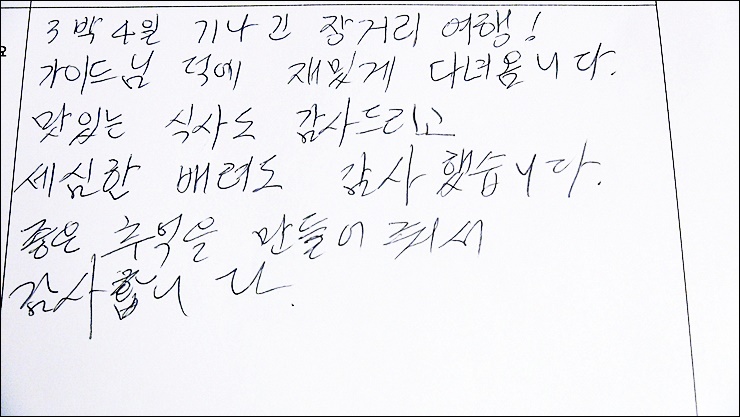 3박4일 기나긴 장거리 여행!
가이드님 덕에 재밌게 다녀옵니다.
맛있는 식사도 감사드리고
세심한 배려도 감사했습니다.
좋은 추억을 만들어 줘서
감사합니다.